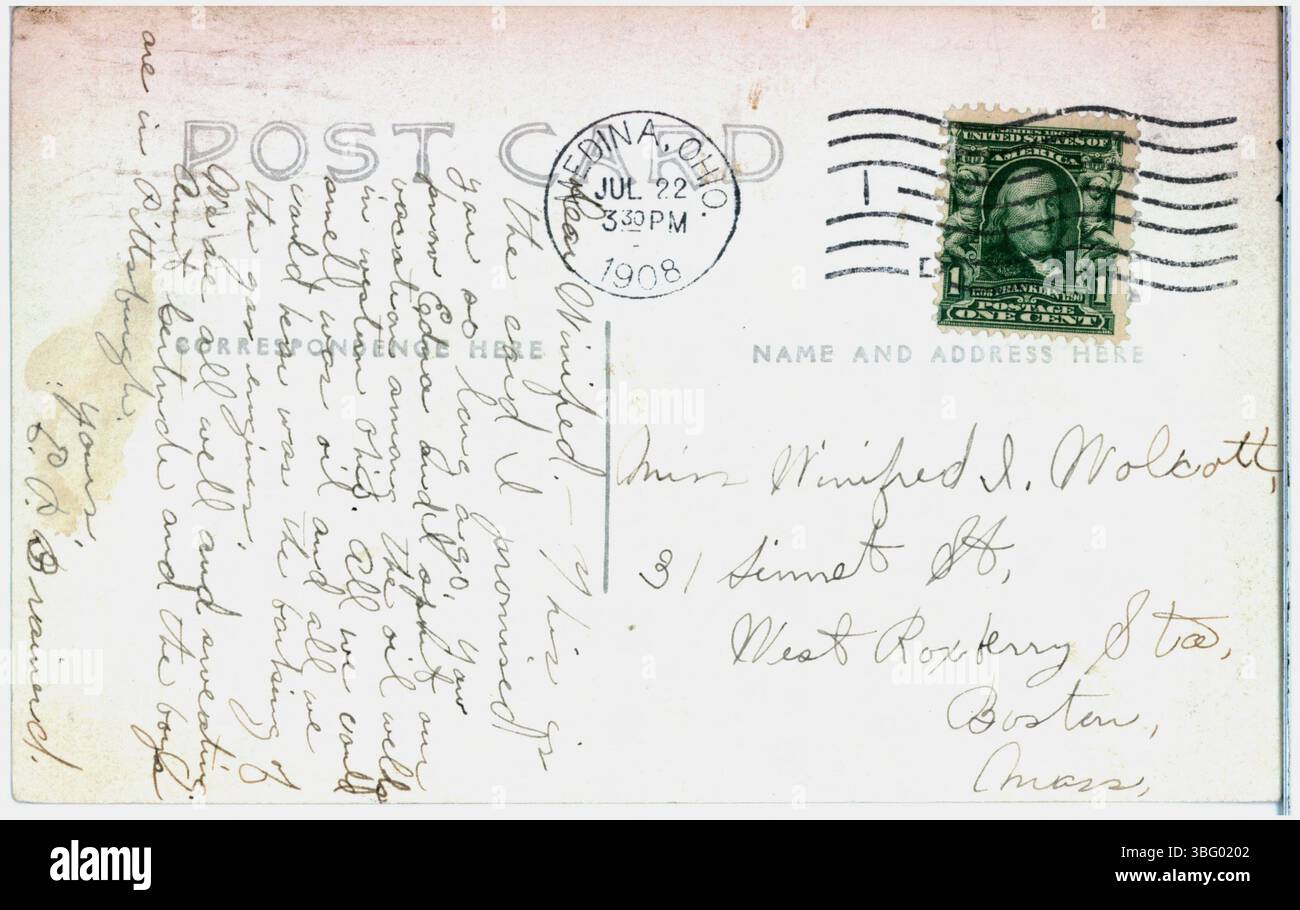 POST CARD
MEDINA, OHIO.
JUL 22
3 30 PM
1908
SERIES 1902
UNITED STATES OF
AMERICA
1 1
1706 FRANKLIN 1790
POSTAGE
ONE CENT
CORRESPONDENCE HERE
NAME AND ADDRESS HERE
Dear Winifred:- This is
the card I promised
you so long ago. You
know Edna and I spent our
vacation among the oil wells
in western Ohio. All we could
smell was oil and all we
could hear was the barking of
the gas engines.
We're all well and sweating.
Aunt Gertrude and the boys
are in Pittsburgh.
Yours,
Brainerd.
Miss Winifred I. Wolcott,
31 Linnet St,
West Roxberry Sta,
Boston,
Mass,
alamy
Image ID: 3BG0202
www.alamy.com